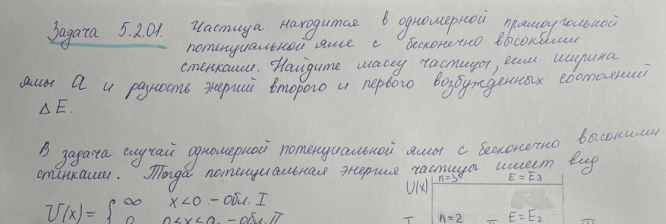 Задача 5.2.01. Частица находится в одномерной прямоугольной
потенциальной яме с бесконечно высокими
стенками. Найдите массу частицы, если ширина
ямы a и разность энергий второго и первого возбужденных состояний
ΔE.
В задача случай одномерной потенциальной ямы с бесконечно высокими
стинками. Тогда потенциальная энергия частицы имеет вид
U(x) n=3 E=E₃
U(x) = { ∞ x<0 - обл. I
0 0<x<a - обл. II
n=2 E=E₂